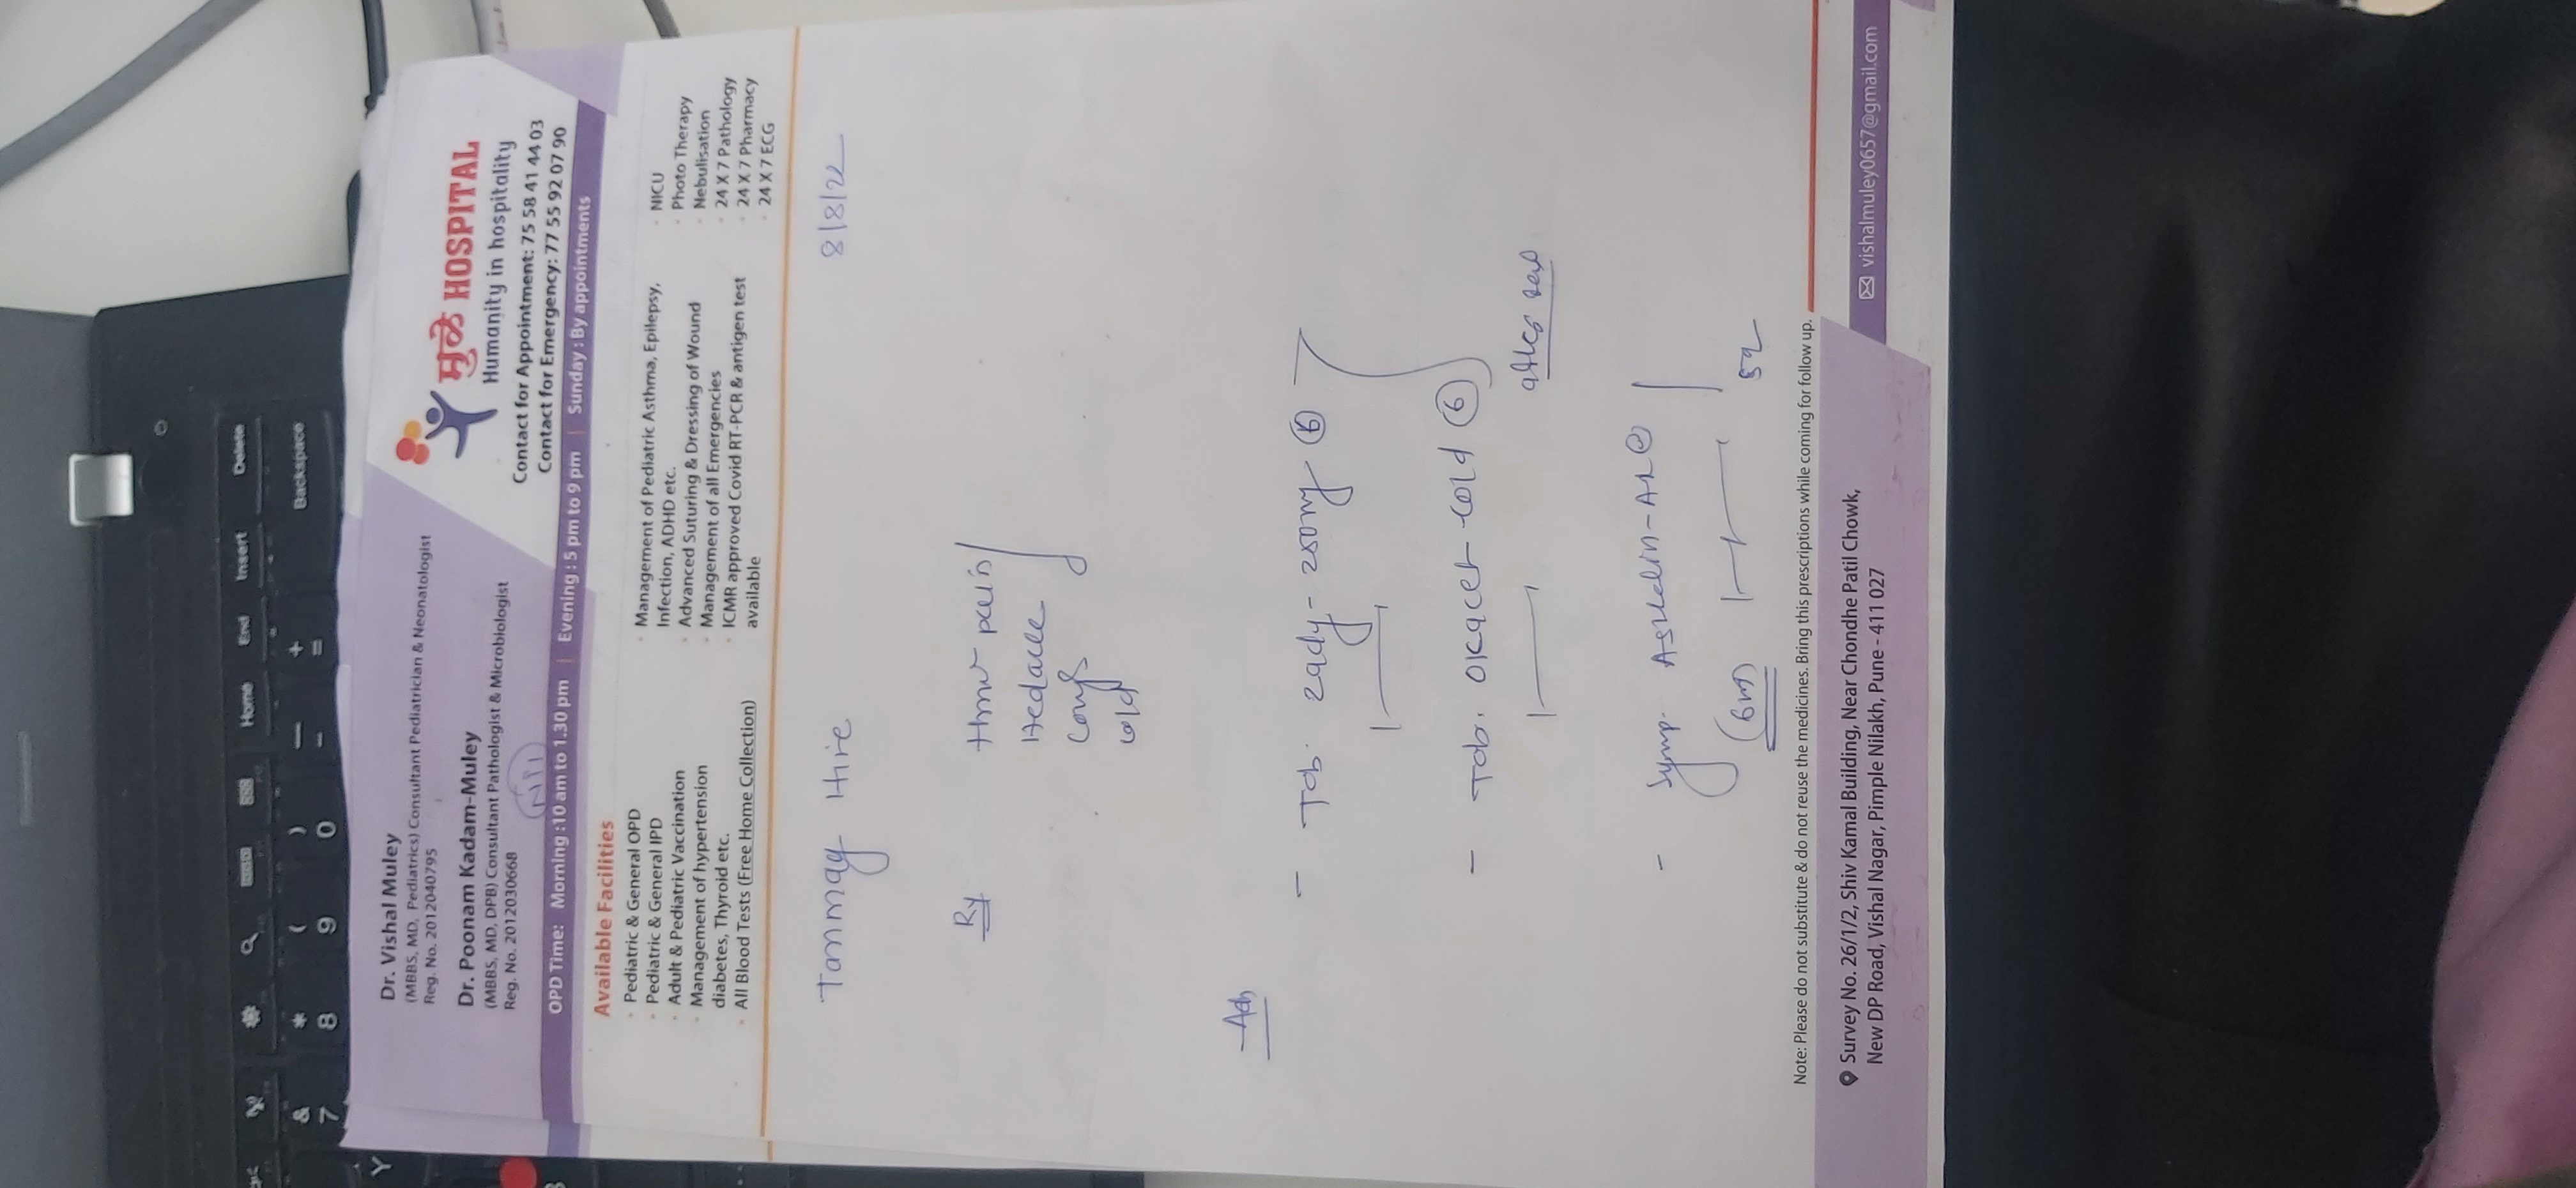 Home End Insert Delete
& * ( ) — +
7 8 9 0 - = Backspace
Y
Dr. Vishal Muley
(MBBS, MD, Pediatrics) Consultant Pediatrician & Neonatologist
Reg. No. 2012040795
Dr. Poonam Kadam-Muley
(MBBS, MD, DPB) Consultant Pathologist & Microbiologist
Reg. No. 2012030668
मुळे HOSPITAL
Humanity in hospitality
Contact for Appointment: 75 58 41 44 03
Contact for Emergency: 77 55 92 07 90
OPD Time: Morning :10 am to 1.30 pm | Evening : 5 pm to 9 pm | Sunday : By appointments
Available Facilities
Pediatric & General OPD
Pediatric & General IPD
Adult & Pediatric Vaccination
Management of hypertension
diabetes, Thyroid etc.
All Blood Tests (Free Home Collection)
Management of Pediatric Asthma, Epilepsy,
Infection, ADHD etc.
Advanced Suturing & Dressing of Wound
Management of all Emergencies
ICMR approved Covid RT-PCR & antigen test
available
NICU
Photo Therapy
Nebulisation
24 X 7 Pathology
24 X 7 Pharmacy
24 X 7 ECG
Tanmay Hire 8/8/22
pain
cold
- Tab. zady- 250mg ⑥
- Tab. okacet cold ⑥
- Syrup. AL
Note: Please do not substitute & do not reuse the medicines. Bring this prescriptions while coming for follow up.
Survey No. 26/1/2, Shiv Kamal Building, Near Chondhe Patil Chowk,
New DP Road, Vishal Nagar, Pimple Nilakh, Pune - 411 027
vishalmuley0657@gmail.com